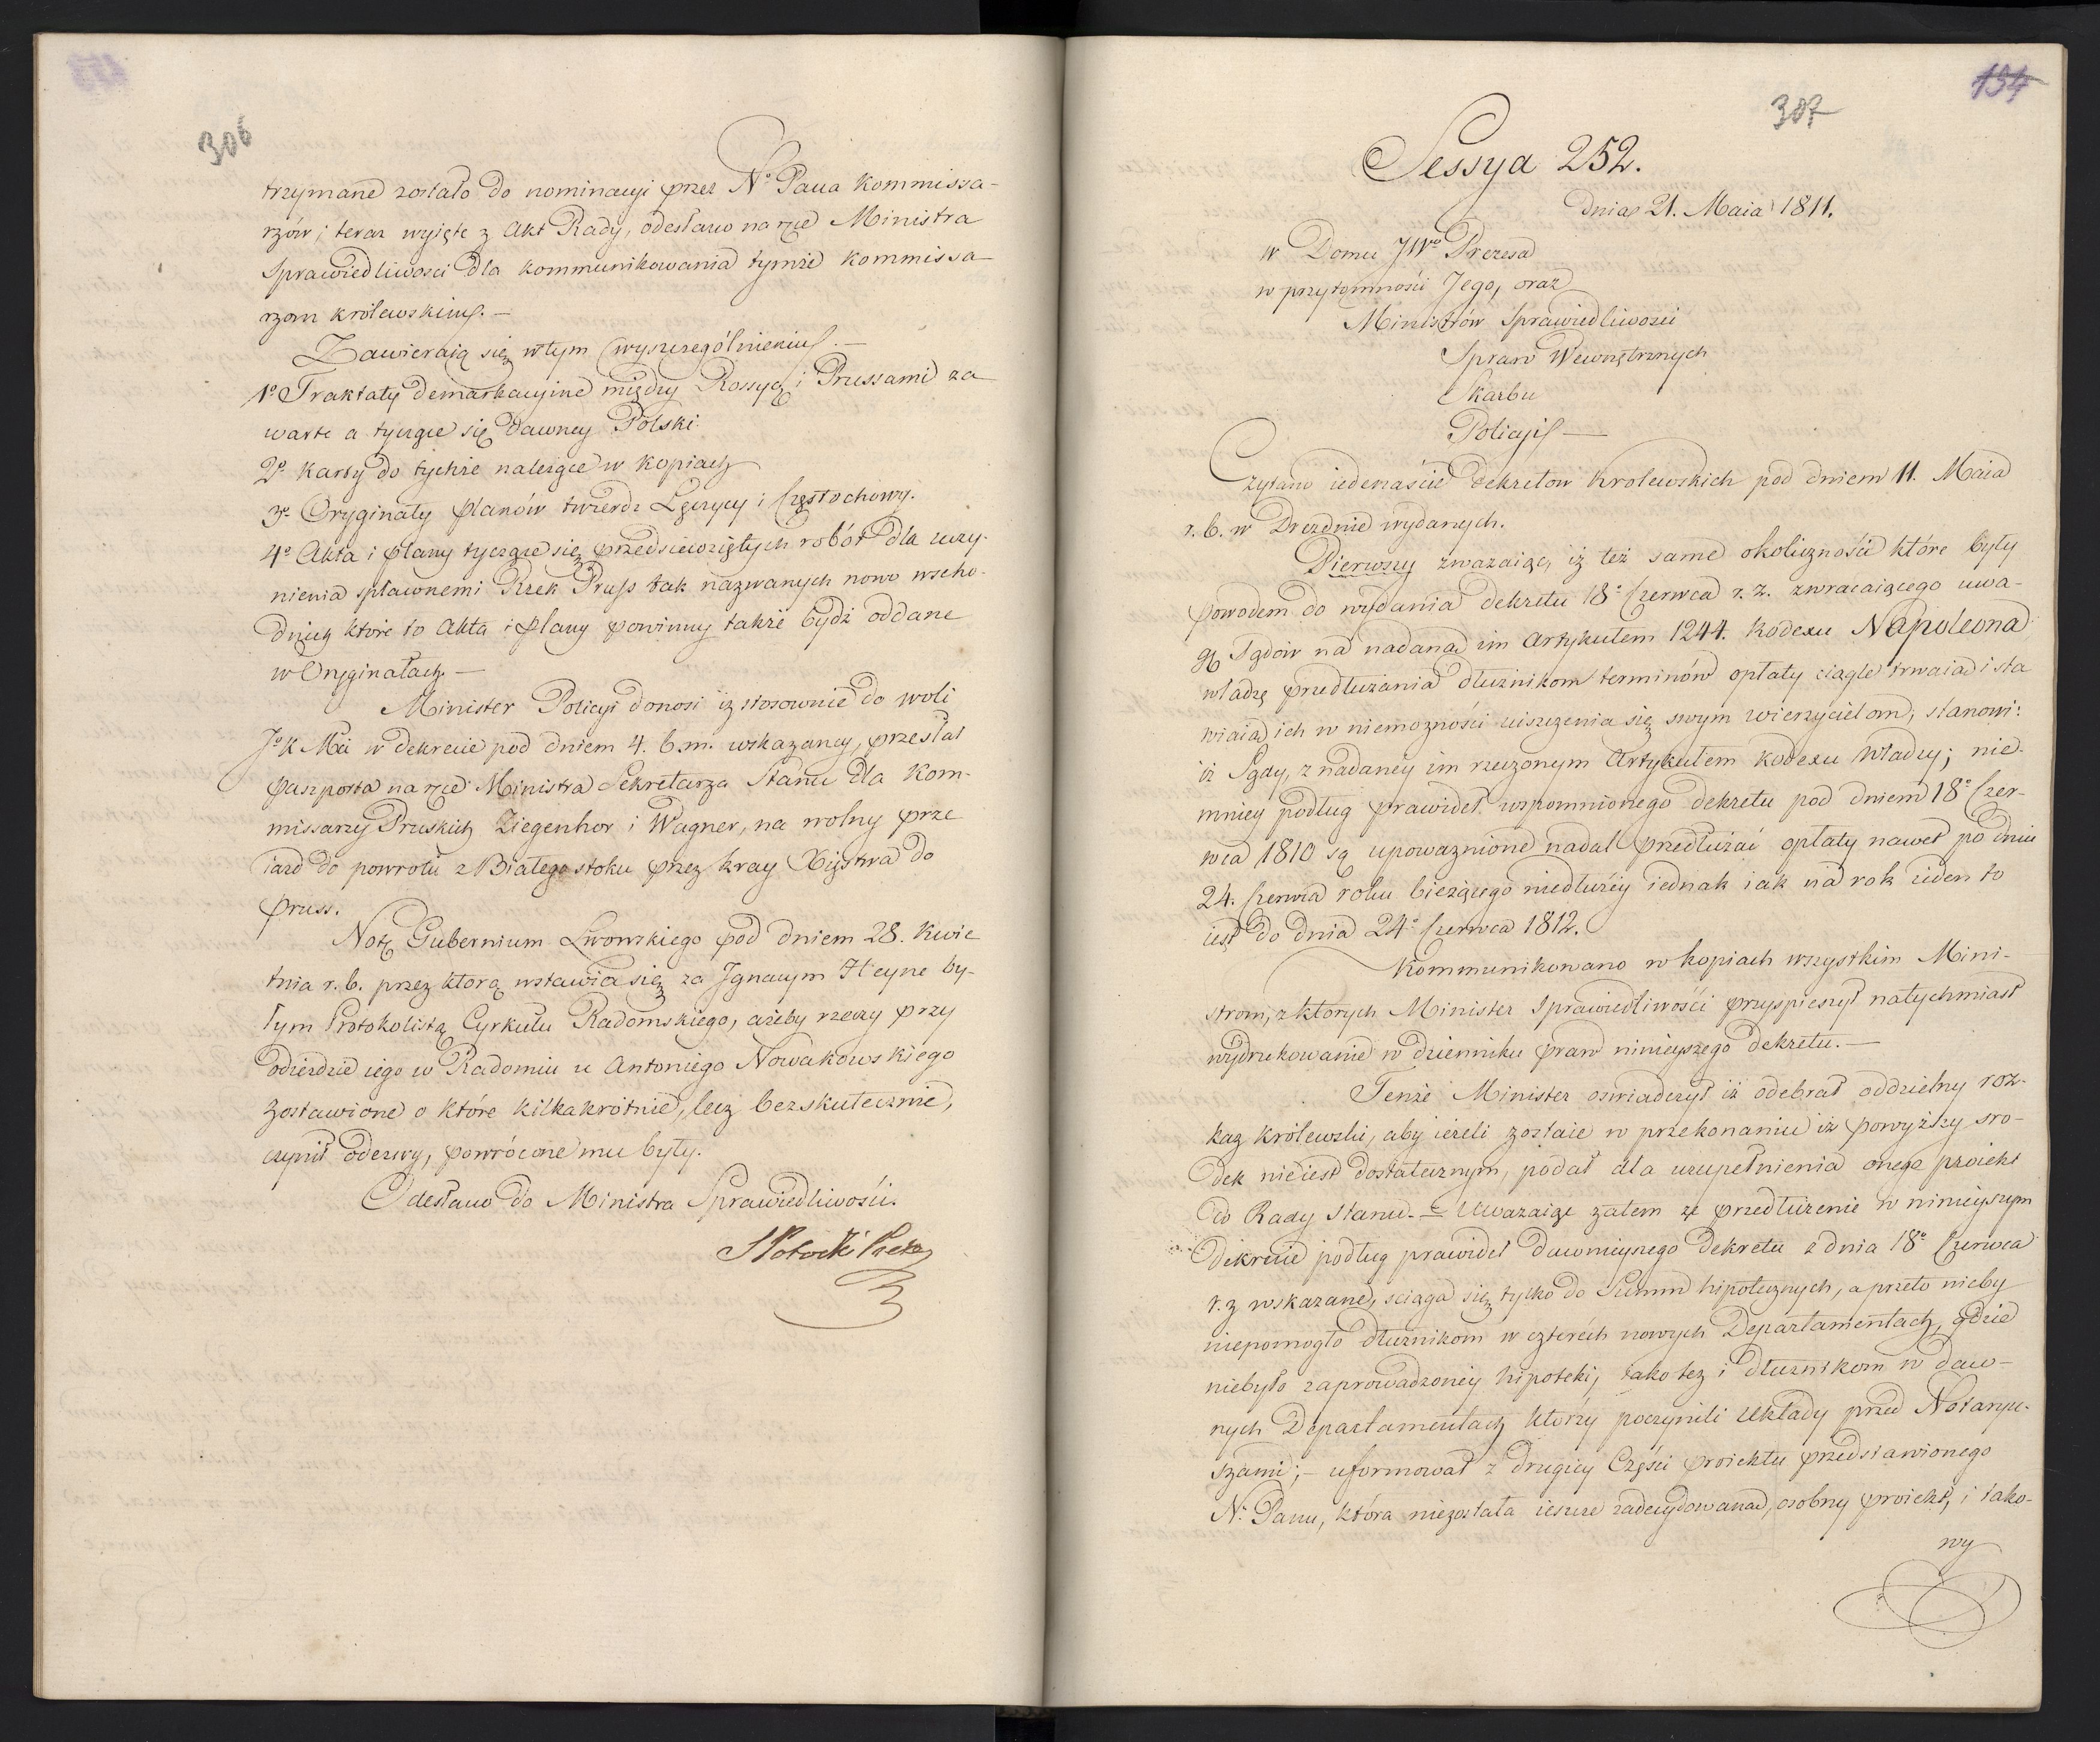 306
trzymane zostało do nominacyi przez N° Pana Kommissa-
rzów; teraz wyięte z Akt Rady, odesłano na ręce Ministra
Sprawiedliwości dla kommunikowania tymże Kommissa-
rzom królewskim. —
Zawieraią się w tym wyszczególnieniu. —
1° Traktaty demarkacyine między Rossyą i Prussami za
warte a tyczące się dawney Polski
2° Karty do tychże należące w Kopiach
3° Oryginały planów twierdz Łęczycy i Częstochowy.
4° Akta i plany tyczące się przedsiewziętych robót dla uczy-
nienia spławnemi Rzek Pruss tak nazwanych nowo wscho-
dnich które to Akta i plany powinny także bydź oddane
w Oryginałach. —
Minister Policyi donosi iż stosownie do woli
J° K Mci w dekrecie pod dniem 4. b.m. wskazaney, przesłał
paszporta na ręce Ministra Sekretarza Stanu dla Kom-
missarzy Pruskich Ziegenhor i Wagner, na wolny prze
iazd do powrotu z Białegostoku przez kray Xięstwa do
pruss.
Notę Gubernium Lwowskiego pod dniem 28. Kwie
tnia r. b. przez którą wstawia się za Ignacym Heyne by-
łym Protokolistą Cyrkułu Radomskiego, ażeby rzeczy przy
odieździe iego w Radomiu u Antoniego Nowakowskiego
zostawione o które kilkakrotnie, lecz bezskutecznie,
czynił odezwy, powrócone mu były.
Odesłano do Ministra Sprawiedliwości.
S Potocki Prezes
154
307
Sessya 252.
Dnia 21. Maia 1811.
w Domu JW° Prezesa
w przytomności Jego, oraz
Ministrów Sprawiedliwości
Spraw Wewnętrznych
Skarbu
Policyi —
Czytano iedenaście dekretów królewskich pod dniem 11. Maia
r. b. w Dreznie wydanych.
Pierwszy zważaiąc, iż też same okoliczności które były
powodem do wydania dekretu 18° Czerwca r. z. zwracaiącego uwa-
gę Sądów na nadaną im Artykułem 1244. Kodexu Napoleona
władzę przedłużania dłużnikom terminów opłaty ciągle trwaią i sta
wiaią ich w niemożności uiszczenia się swym wierzycielom; stanowi:
iż Sądy, z nadaney im rzeczonym Artykułem Kodexu władzy; nie-
mniey podług prawideł wspomnionego dekretu pod dniem 18° Czer-
wca 1810 są upoważnione nadal przedłużać opłaty nawet po dniu
24. Czerwca roku bieżącego niedłużey iednak iak na rok ieden to
iest do dnia 24° Czerwca 1812.
Kommunikowano w kopiach wszystkim Mini-
strom, z których Minister Sprawiedliwości przyspieszył natychmiast
wydrukowanie w dzienniku praw ninieyszego dekretu. —
Tenże Minister oświadczył iż odebrał oddzielny roz-
kaz królewski, aby ieżeli zostaie w przekonaniu iż powyższy śro-
dek nieiest dostatecznym, podał dla uzupełnienia onego proiekt
do Rady Stanu. — Uważaiąc zatem że przedłużenie w ninieyszym
dekrecie podług prawideł dawnieyszego dekretu z dnia 18° Czerwca
r. z wskazane, sciąga się tylko do Summ hipotecznych, a przeto nieby
niepomogło dłużnikom w czterech nowych Departamentach, gdzie
niebyło zaprowadzoney hipoteki, iako też i dłużnikom w daw-
nych Departamentach którzy poczynili układy przed Notaryu-
szami; — uformował z drugiey Części proiektu przedstawionego
N: Panu, która niezostała ieszcze zadecydowaną, osobny proiekt, i tako-
wy